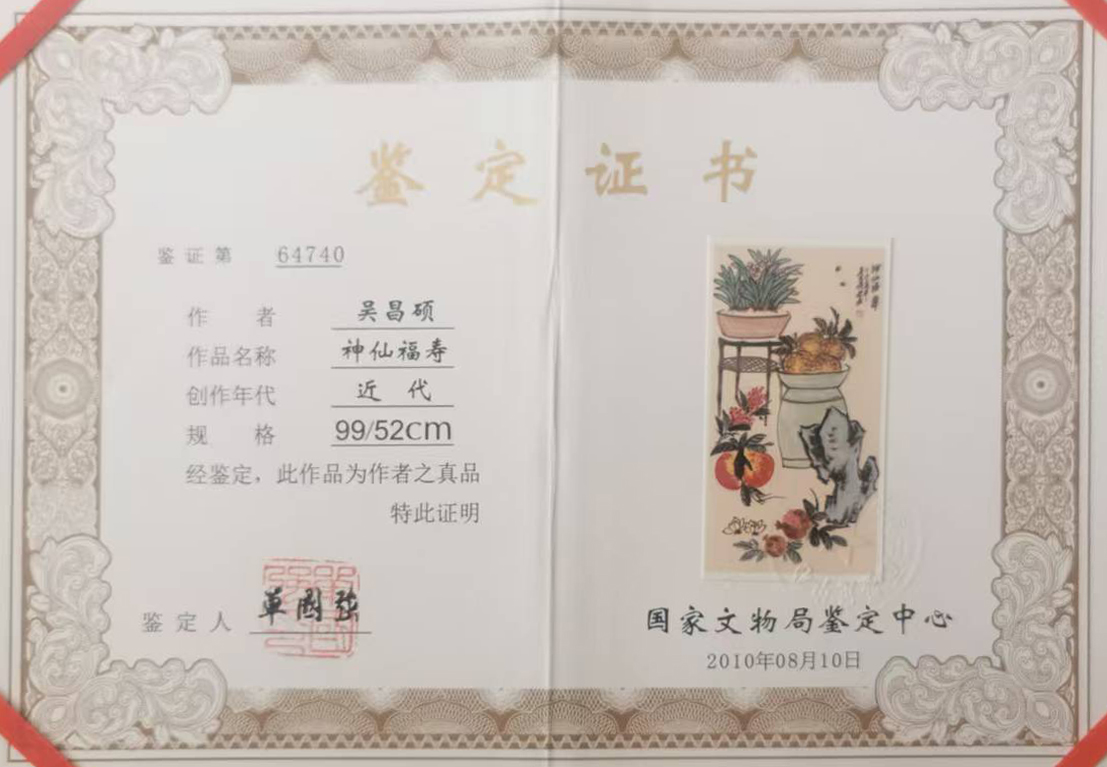 鉴定证书
鉴证第 64740
作者 吴昌硕
作品名称 神仙福寿
创作年代 近代
规格 99/52cm
经鉴定，此作品为作者之真品
特此证明
鉴定人 单国强
神仙福寿
国家文物局鉴定中心
2010年08月10日